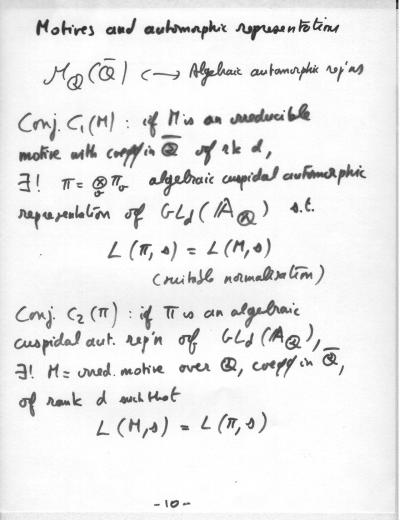 Motives and automorphic representations
M_Q(Q̄) ⟷ Algebraic automorphic rep'ns
Conj. C₁(M) : if M is an irreducible
motive with coeff in Q̄ of rk d,
∃! π = ⊗_v π_v algebraic cuspidal automorphic
representation of GL_d(A_Q) s.t.
L(π,s) = L(M,s)
(suitable normalisation)
Conj. C₂(π) : if π is an algebraic
cuspidal aut. rep'n of GL_d(A_Q),
∃! M = irred. motive over Q, coeff in Q̄,
of rank d such that
L(M,s) = L(π,s)
-10-